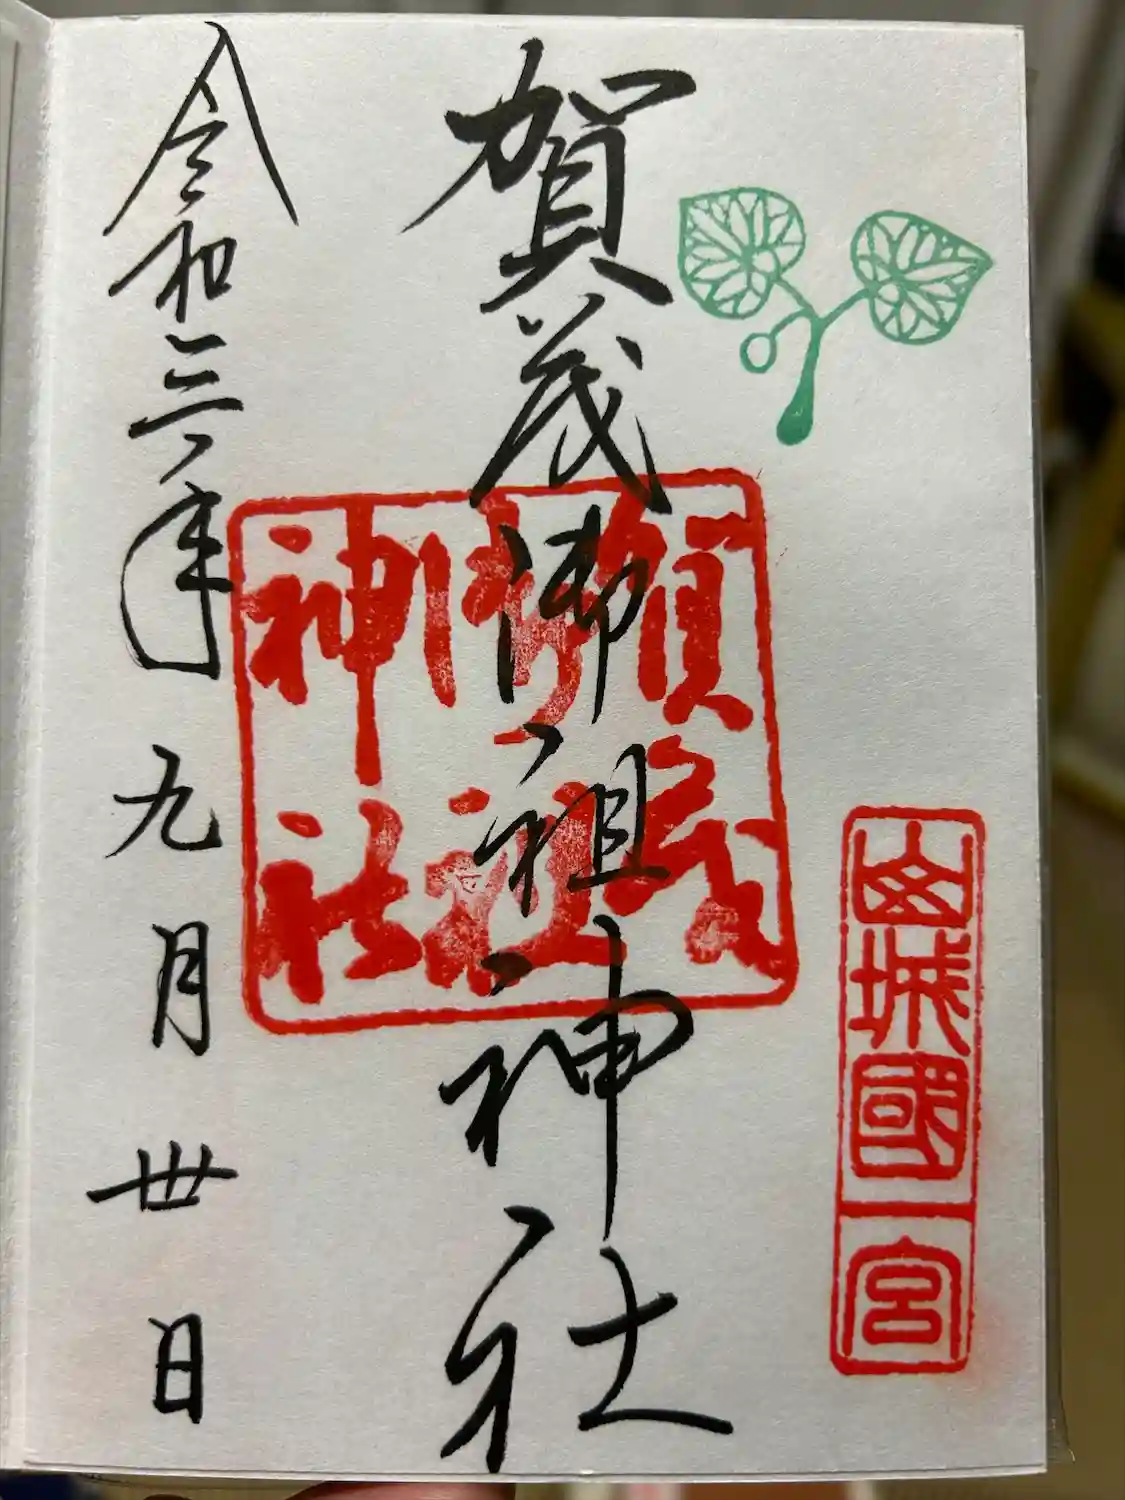 山城國一宮
賀茂御祖神社
賀茂
御祖
神社
令和三年九月卅日